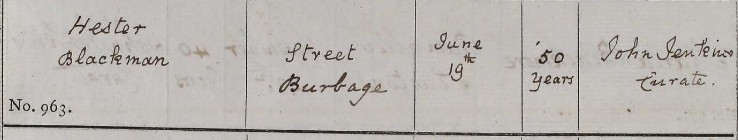 Hester
Blackman
No. 963.
Street
Burbage
June
19th
50
Years
John Jenkins
Curate.